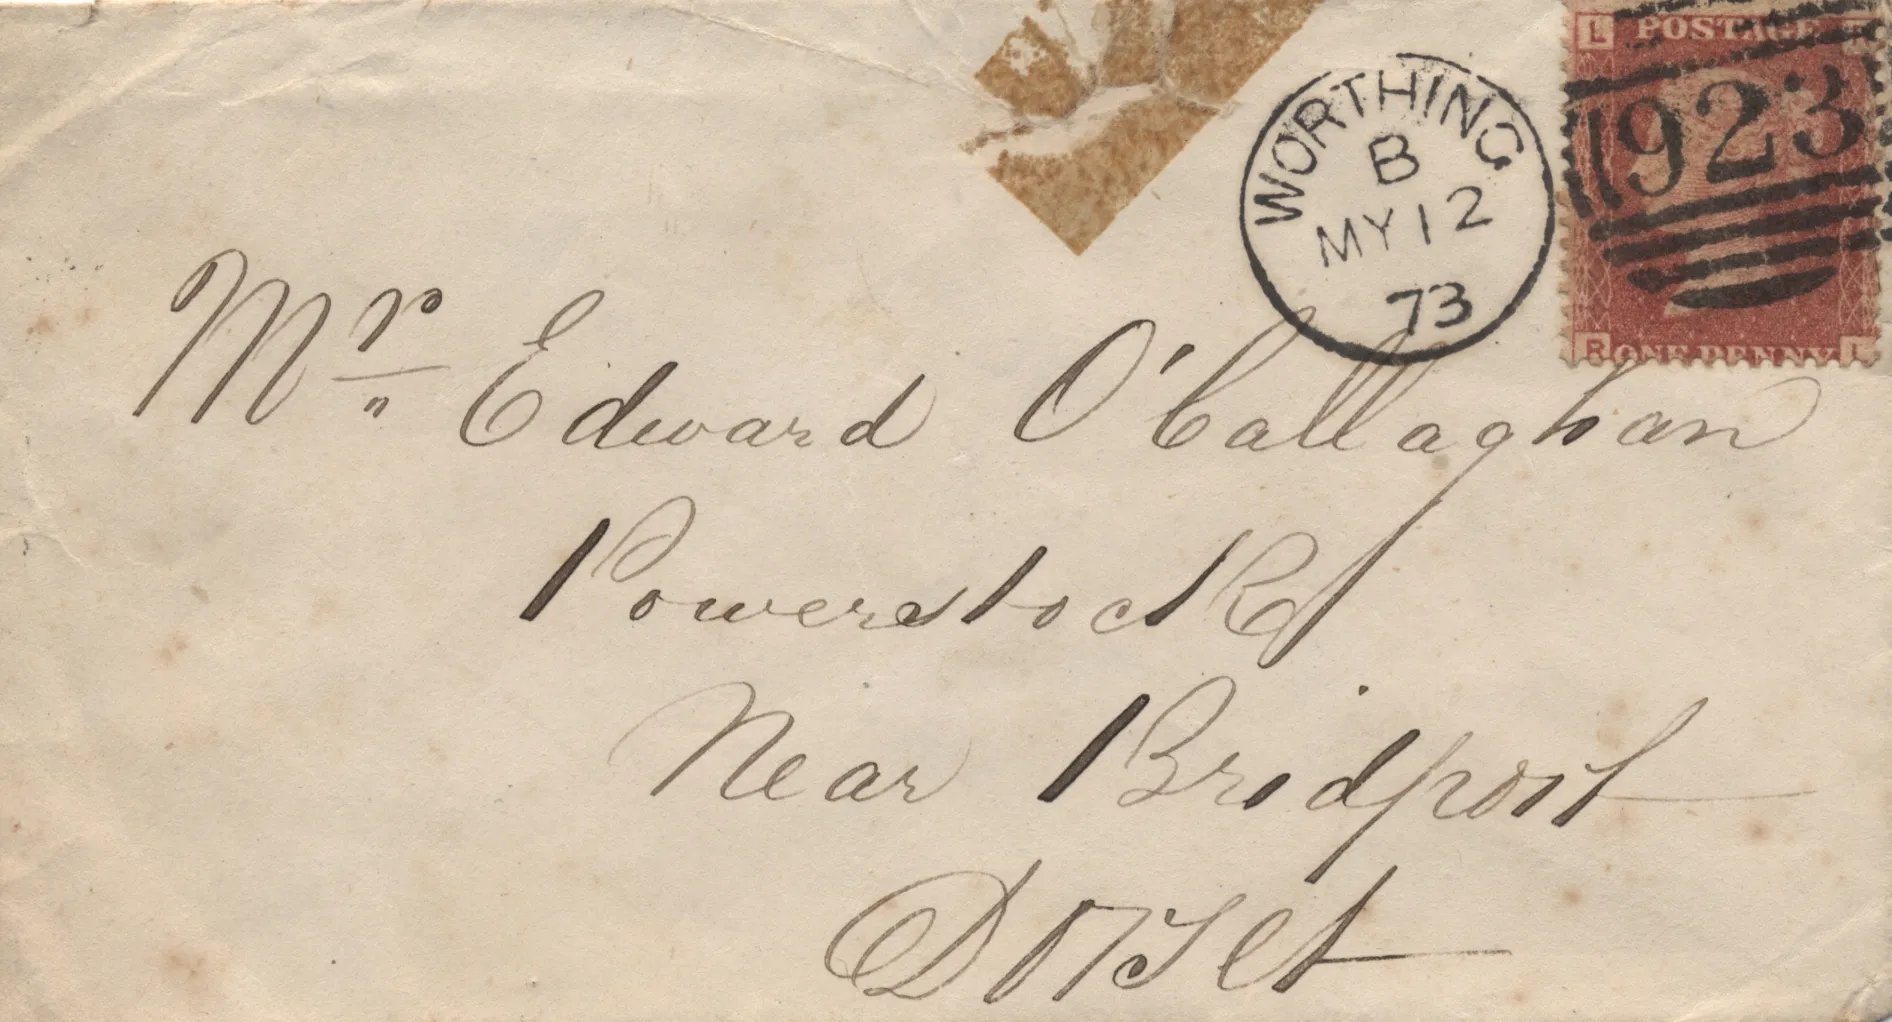 L POSTAGE R
WORTHING
B
MY 12
73
923
R ONE PENNY L
Mr. Edward O'Callaghan
Powerstock
Near Bridport
Dorset